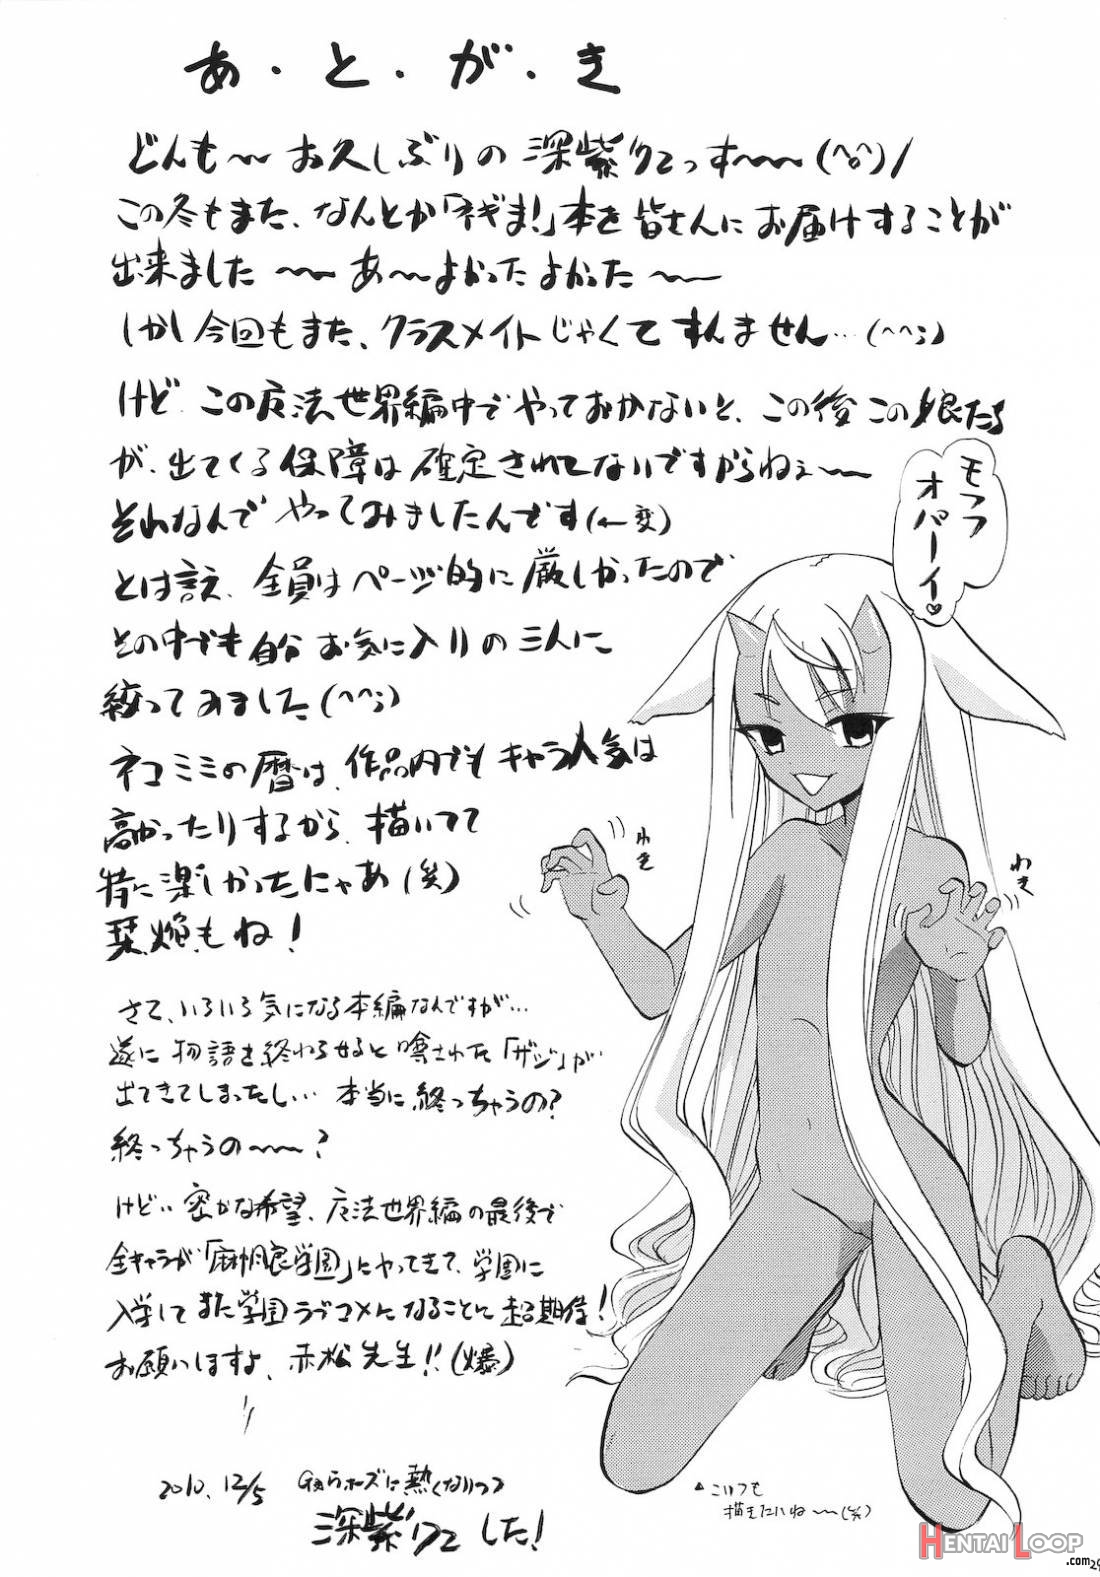 あ・と・が・き
どんも〜〜お久しぶりの深紫クロっす〜〜〜(^o^)/
この冬もまた、なんとか「ネギま!」本を皆さんにお届けすることが
出来ました〜〜あ〜よかったよかった〜〜
しかし今回もまた、クラスメイトじゃくてすんません…(^^;)
けど、この魔法世界編中でやっておかないと、この後この娘たち
が、出てくる保障は確定されてないですからねぇ〜〜
それなんでやってみましたんです(←変)
とは言え、全員はページ的に厳しかったので
その中でも自分お気に入りの三人に
絞ってみました(^^;)
ネコミミの暦は、作品内でもキャラ人気は
高かったりするから、描いてて
特に楽しかったにゃあ(笑)
栞、焔もね!
さて、いろいろ気になる本編なんですが…
遂に物語を終わらせると噂された「ザジ」が
出てきてしまったし…本当に終っちゃうの?
終っちゃうの〜〜〜?
けど…密かな希望、魔法世界編の最後で
全キャラが「麻帆良学園」にやってきて、学園に
入学してまた学園ラブコメになることに超期待!
お願いしますよ、赤松先生!!(爆)
2010.12/5
に熱くなりつつ
深紫クロでした!
モフフ
オパーイ♡
わき
わき
▲こいつも
描きたいね〜〜(笑)
HENTAI LOOP
.com
29